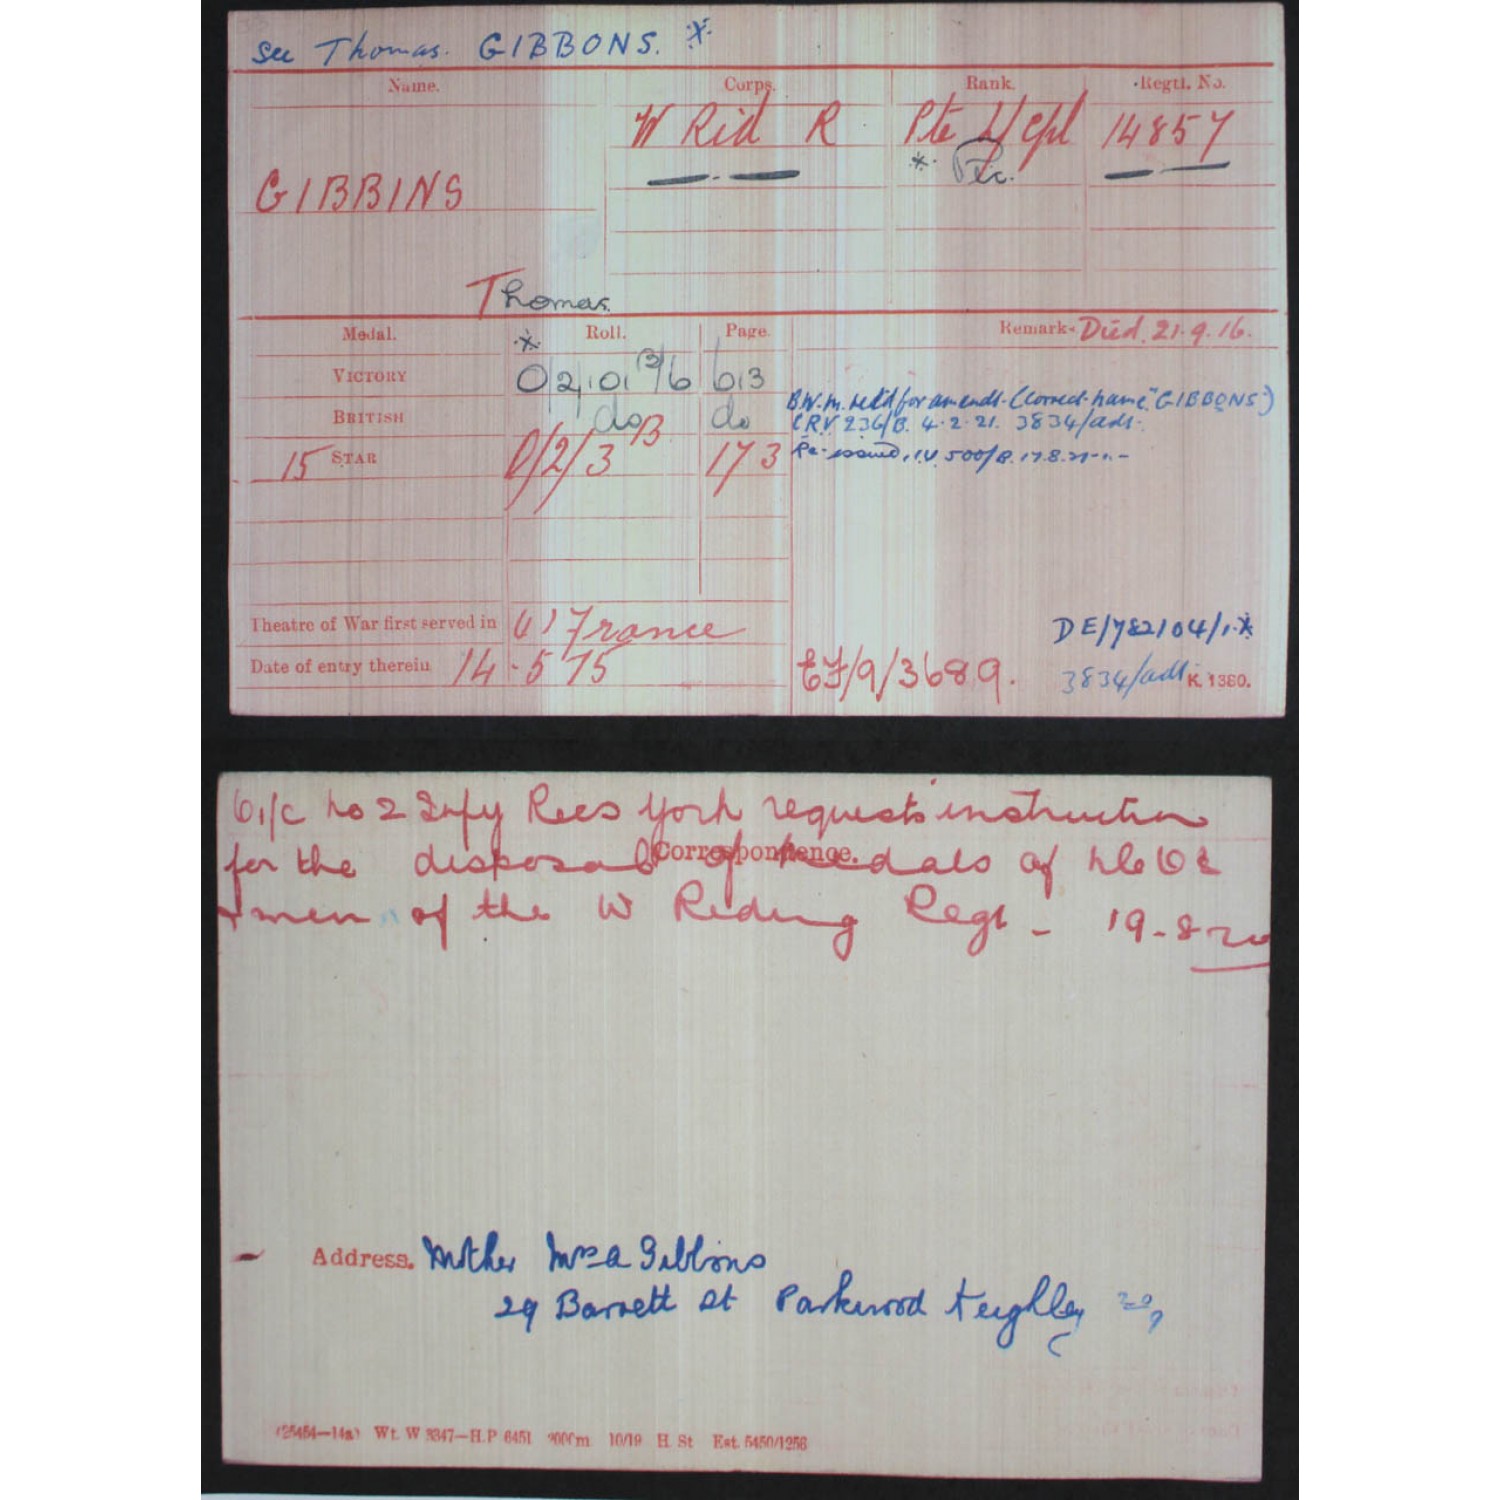 See Thomas. GIBBONS. *
Name. Corps. Rank. Regtl. No.
W Rid R Pte L/Cpl 14857
* Pte.
GIBBINS
Thomas.
Medal. * Roll. Page. Remarks Died. 21.9.16.
VICTORY 613
B.W.M. retd for amendt. (Correct name "GIBBONS")
BRITISH do do 236/B. 4.2.21. 3834/adt.
15 STAR 0/2/3 B 173 Re-issued, I.V. 500/B.
Theatre of War first served in (1) France DE/782104/1.*
Date of entry therein 14.5.15 EF/9/3689. 3834/adt K. 1380.
O i/c No 2 Infy Recs York requests instruction
Correspondence.
for the disposal of medals of
men of the W Riding Regt - 19-8-20
Address. Mother Mrs A Gibbons
29 Barrett St Parkwood Keighley
(25454—14a) Wt. W 3347—H.P 6451 10/19 H. St Est. 5450/1256